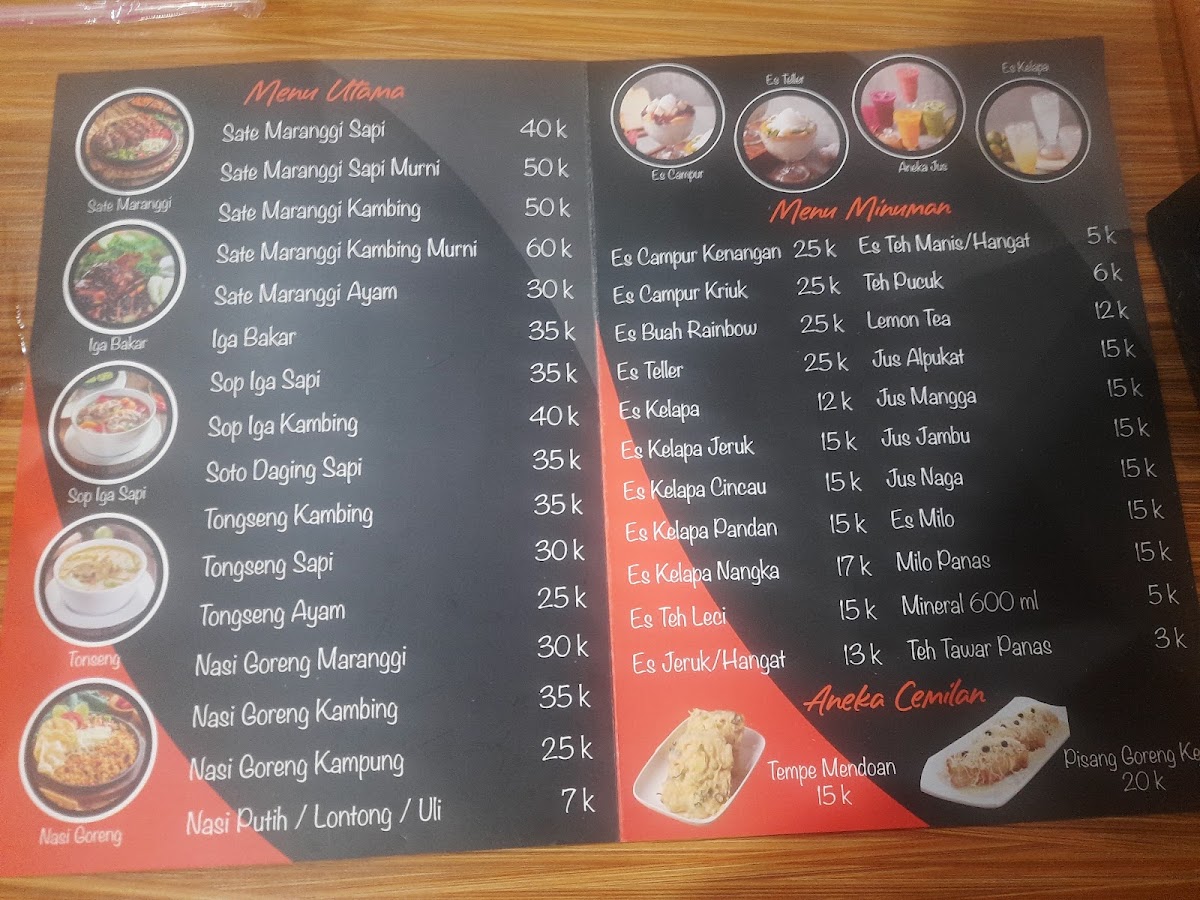 Menu Utama
Sate Maranggi Sapi 40 k
Sate Maranggi Sapi Murni 50 k
Sate Maranggi Kambing 50 k
Sate Maranggi Kambing Murni 60 k
Sate Maranggi Ayam 30 k
Iga Bakar 35 k
Sop Iga Sapi 35 k
Sop Iga Kambing 40 k
Soto Daging Sapi 35 k
Tongseng Kambing 35 k
Tongseng Sapi 30 k
Tongseng Ayam 25 k
Nasi Goreng Maranggi 30 k
Nasi Goreng Kambing 35 k
Nasi Goreng Kampung 25 k
Nasi Putih / Lontong / Uli 7 k
Sate Maranggi
Iga Bakar
Sop Iga Sapi
Tonseng
Nasi Goreng
Es Campur
Es Teller
Aneka Jus
Es Kelapa
Menu Minuman
Es Campur Kenangan 25 k
Es Campur Kriuk 25 k
Es Buah Rainbow 25 k
Es Teller 25 k
Es Kelapa 12 k
Es Kelapa Jeruk 15 k
Es Kelapa Cincau 15 k
Es Kelapa Pandan 15 k
Es Kelapa Nangka 17 k
Es Teh Leci 15 k
Es Jeruk/Hangat 13 k
Es Teh Manis/Hangat 5 k
Teh Pucuk 6 k
Lemon Tea 12 k
Jus Alpukat 15 k
Jus Mangga 15 k
Jus Jambu 15 k
Jus Naga 15 k
Es Milo 15 k
Milo Panas 15 k
Mineral 600 ml 5 k
Teh Tawar Panas 3 k
Aneka Cemilan
Tempe Mendoan
15 k
Pisang Goreng Ke
20 k